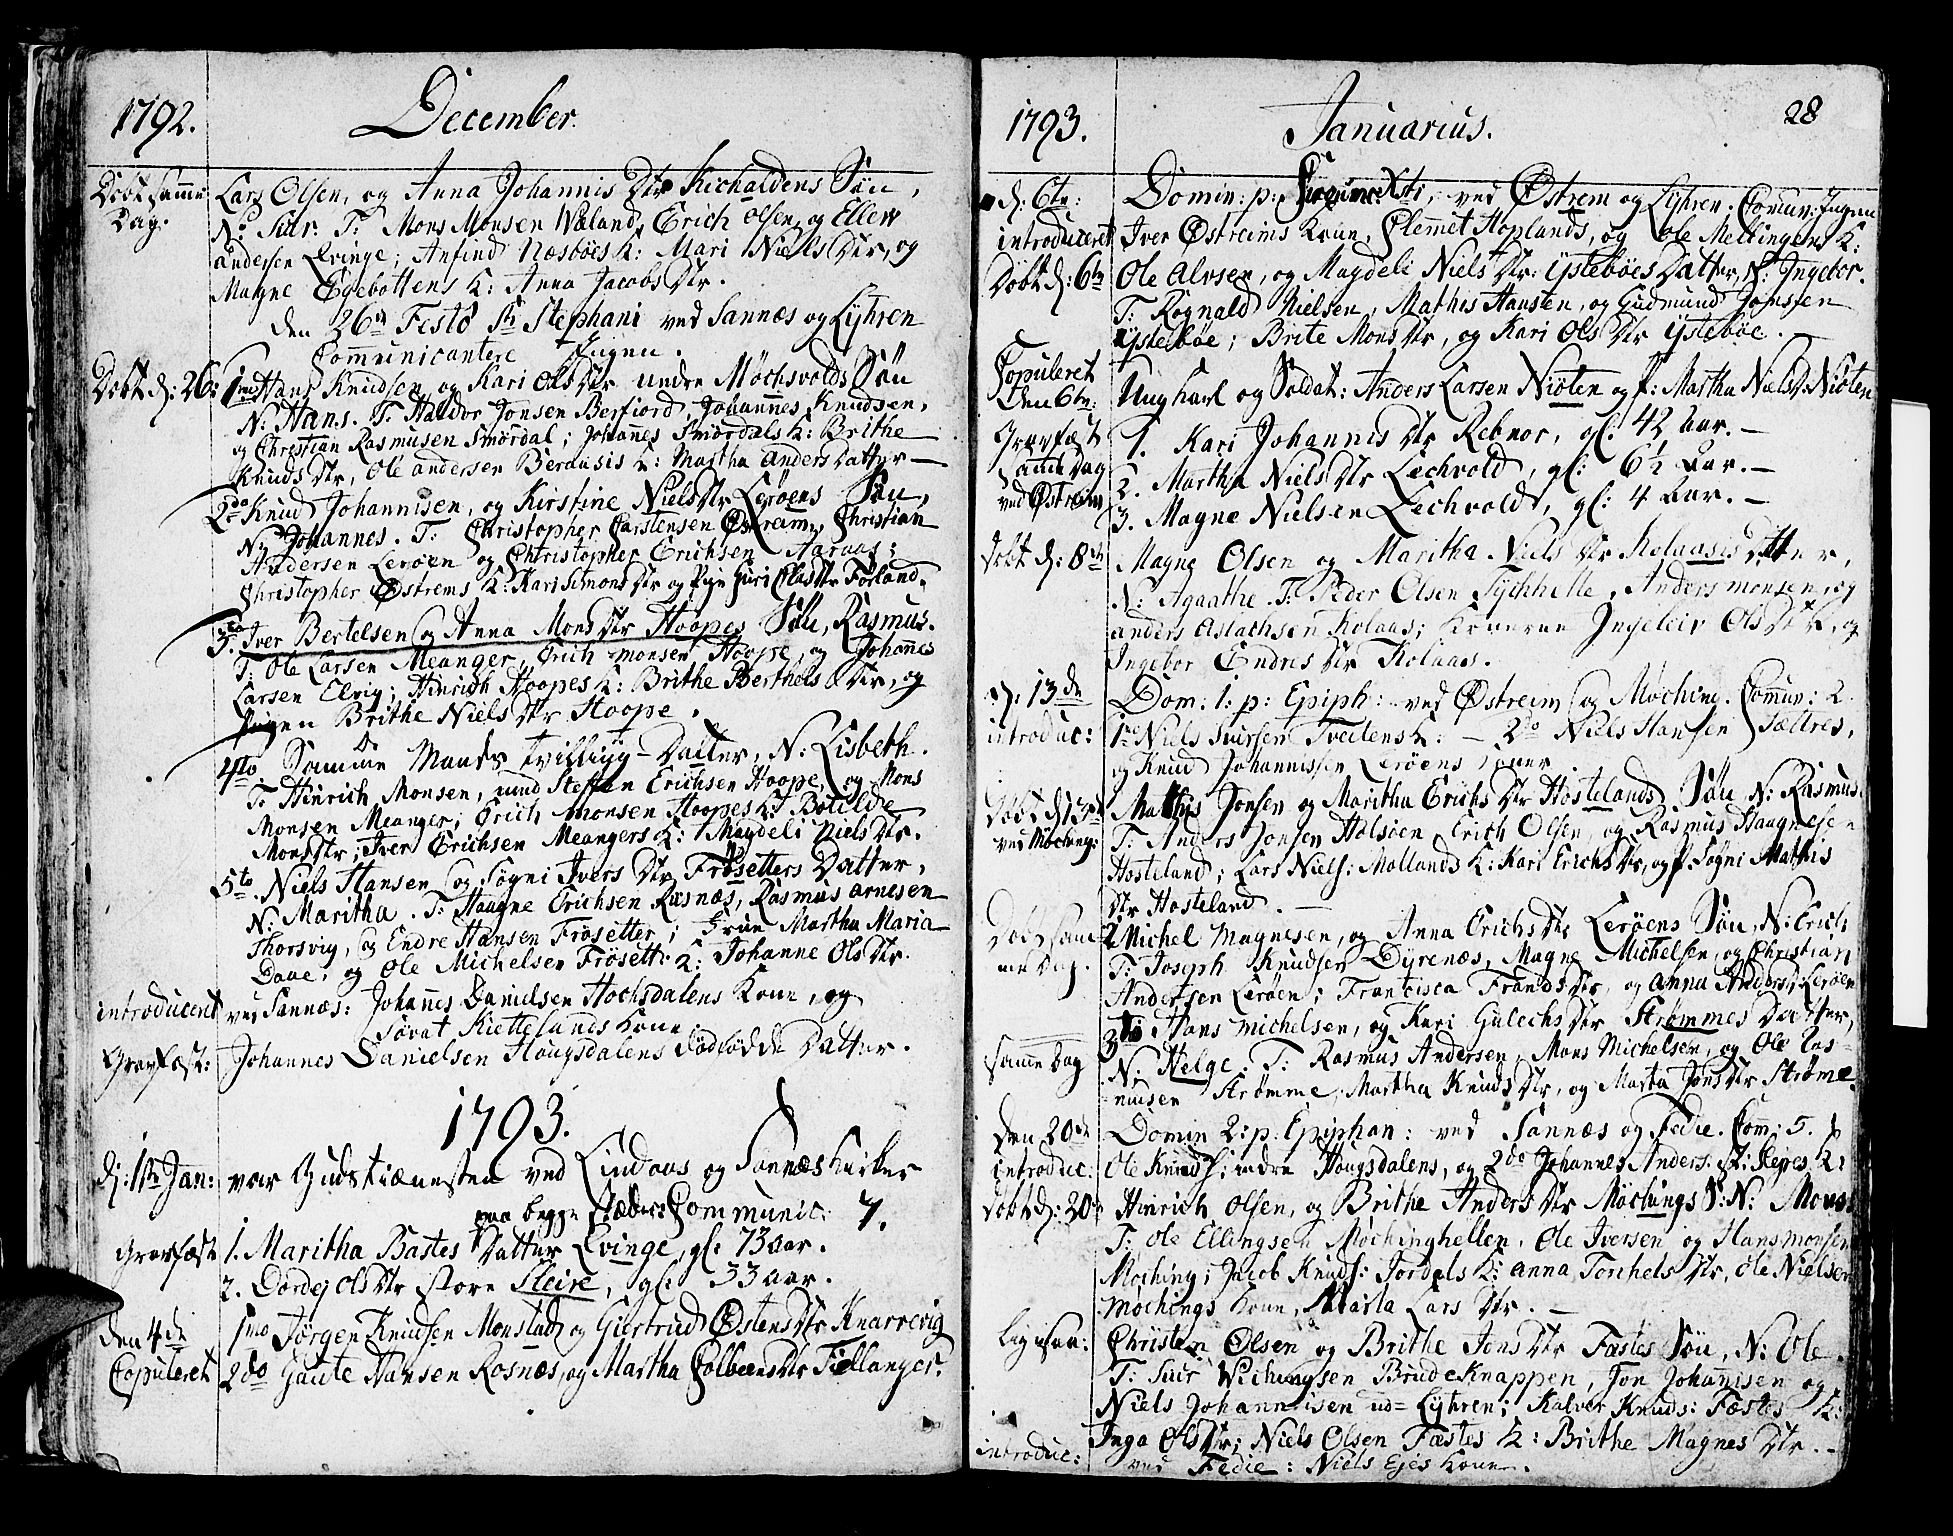 1792. December.
Döbt samme Dag. Lars Olsen, og Anna Johannis Dtr Kichaldens Sön,
N: Siur. T: Mons Monsen Wæland, Erich Olsen, og Ellen
Andersen Qvinge; Anfind Næsböes K: Mari Niels Dtr, og
Magne Egebottens K: Anna Jacobs Dtr.
den 26de Festo Sti Stephani ved Sannæs og Lyhren
Communicantere Ingen.
Döbt d: 26: 1mo Hans Knudsen og Kari Ols Dtr nedre Möchsvolds Sön
N: Hans. T: Haldor Jonsen Berfiord, Johannes Knudsen,
og Christian Rasmusen Smördal; Johannes Smördals K: Brithe
Knuds Dtr, Ole Andersen Berausis K: Martha Anders Datter —
2do Knud Johannisen, og Kirstine Niels Dtr Leröens Sön,
N: Johannes. T: Christopher Carstensen Östreim, Christian
Andersen Leröen og Christopher Erichsen Aaraas;
Christopher Östrems K: Kari Simons Dtr og Pige Guri Olas Dtr Förland.
3tio Iver Bertelsen og Anna Mons Dtr Hoopes Sön, Rasmus.
T: Ole Larsen Meanger, Erich Monsen Hoope, og Johannes
Larsen Elvig; Hinrich Hoopes K: Brithe Berthels Dtr, og
Pigen Brithe Niels Dtr Hoope.
4to Samme Mands tvilling-Datter, N: Lisbeth.
T: Hinrich Monsen, Steffen Erichsen Hoope, og Mons
Monsen Meanger; Erich Monsen Hoopes K: Botilde
Mons Dtr; Iver Erichsen Meangers K: Magdeli Niels Dtr.
5to. Niels Hansen og Sögni Ivers Dtr Frösetters Datter,
N: Maritha. T: Haagne Erichsen Rasnæs, Rasmus Arnesen
Thorsvig, og Endre Hansen Frösetter; Frue Martha Maria
Daae, og Ole Michelsen Frösett: K: Johanne Ols Dtr.
introduceret ved Sannæs: Johannes Danielsen Hochsdalens Kone, og
Sövat Kiettelands Kone
Gravfæst: Johannes Danielsen Hougsdalens dödfödde Datter.
1793.
d: 1ste Jan: var Gudstienesten ved Lindaas og Sannæs Kirker
paa begge Stæder: Communic: 7.
Gravfæst 1. Maritha Bastes Datter Qvinge, gl: 73 aar.
2. Dordej Ols Dtr store Sleire, gl: 33 aar.
den 4de 1mo Jörgen Knudsen Monstad og Giertrud Östens Dtr Knarrevig
Copuleret 2do Gaute Hansen Rosnæs, og Martha Colbens Dtr Fiellanger.
1793. Januarius. 28
d. 6te: Domin: p: Xsti, ved Östrem og Lyhren. Comun: Ingen
introduceret Iver Östreims Kone, Clemet Hoplands, og Ole Mellingens K:
Döbt d: 6te Ole Alvsen, og Magdeli Niels Dtr: Ysteböes Datter, N: Ingebor.
T: Rognald Nielsen, Mathis Hansten, og Gudmund Jonsen
Ysteböe; Brite Mons Dtr, og Kari Ols Dtr Ysteböe.
Copuleret Den 6te: Ung karl og Soldat: Anders Larsen Nioten og P: Martha Niels Dr: Nioten
Gravfæst 1. Kari Johannis Dtr Rebnor, gl: 42 Aar. —
Samme Dag 2. Martha Niels Dtr Lechvold, gl: 6½ Aar. —
ved Östreim 3. Magne Nielsen Lechvold, gl: 4 Aar. —
Döbt d: 8de Magne Olsen og Maritha Niels Dtr Kolaasis Datter,
N: Agaathe. T: Peder Olsen Tychhelle, Anders Monsen, og
Anders Aslachsen Kolaas; Konerne Ingeleiv Ols Dtr, og
Ingebor Endres Dtr Kolaas.
d. 13de Dom: 1: p: Epiph: ved Östrem og Möching. Comun: 2.
introduc: 1mo Niels Siursen Tveitens K: — 2do Niels Hansen Sættres,
og Knud Johannissen Leröens Koner.
Döbt d: 13de ved Möching: Mathis Jonsen og Maritha Erichs Dtr Hostelands Sön N: Rasmus.
T: Anders Jonsen Holsöen, Erich Olsen, og Rasmus Haagnesen
Hosteland; Lars Niels: Mollands K: Kari Erichs Dtr, og P. Sögni Mathis
Dtr Hosteland. —
Döbt samme Dag. 2. Michel Magnesen, og Anna Erichs Dtr Leröens Sön, N: Erich
T: Joseph Knudsen Dyrenæs, Magne Michelsen, og Christian
Andersen Leröen; Francisca Frands Dtr, og Anna Anders: Leröen
samme Dag 3tio Hans Michelsen, og Kari Gulechs Dtr Strömmes Datter,
N: Helge. T: Rasmus Andersen, Mons Michelsen, og Ole Ras=
=musen Strömme, Martha Knuds Dtr, og Marta Jons Dtr Ströme.
den 20de Domin 2: p: Epiphan: ved Sannæs og Fedie. Com: 5.
introduc: Ole Knuds: indre Hougsdalens, og 2do Johannes Anders: st: Slejes K:
Döbt d: 20de Hinrich Olsen, og Brithe Anders Dtr Möchings S: N: Mons
T: Ole Ellingsen Möchinghellen, Ole Iversen og Hans Monsen
Möching; Jacob Knuds: Jordals K: Anna Torchels Dtr, Ole Nielsen
Möchings Kone, Marta Lars Dtr. —
Lig esaa: Christen Olsen og Brithe Jons Dtr Fæstes Sön, N: Ole.
T: Siur Wichingsen Brudeknappen, Jon Johannisen og
Niels Johannisen ud= Lyhren; Halvor Knuds: Fæstes K:
Inga Ols Dtr; Niels Olsen Fæstes K: Brithe Magnes Dtr. -
introduc: ved Fedie: Niels Ejes Kone.